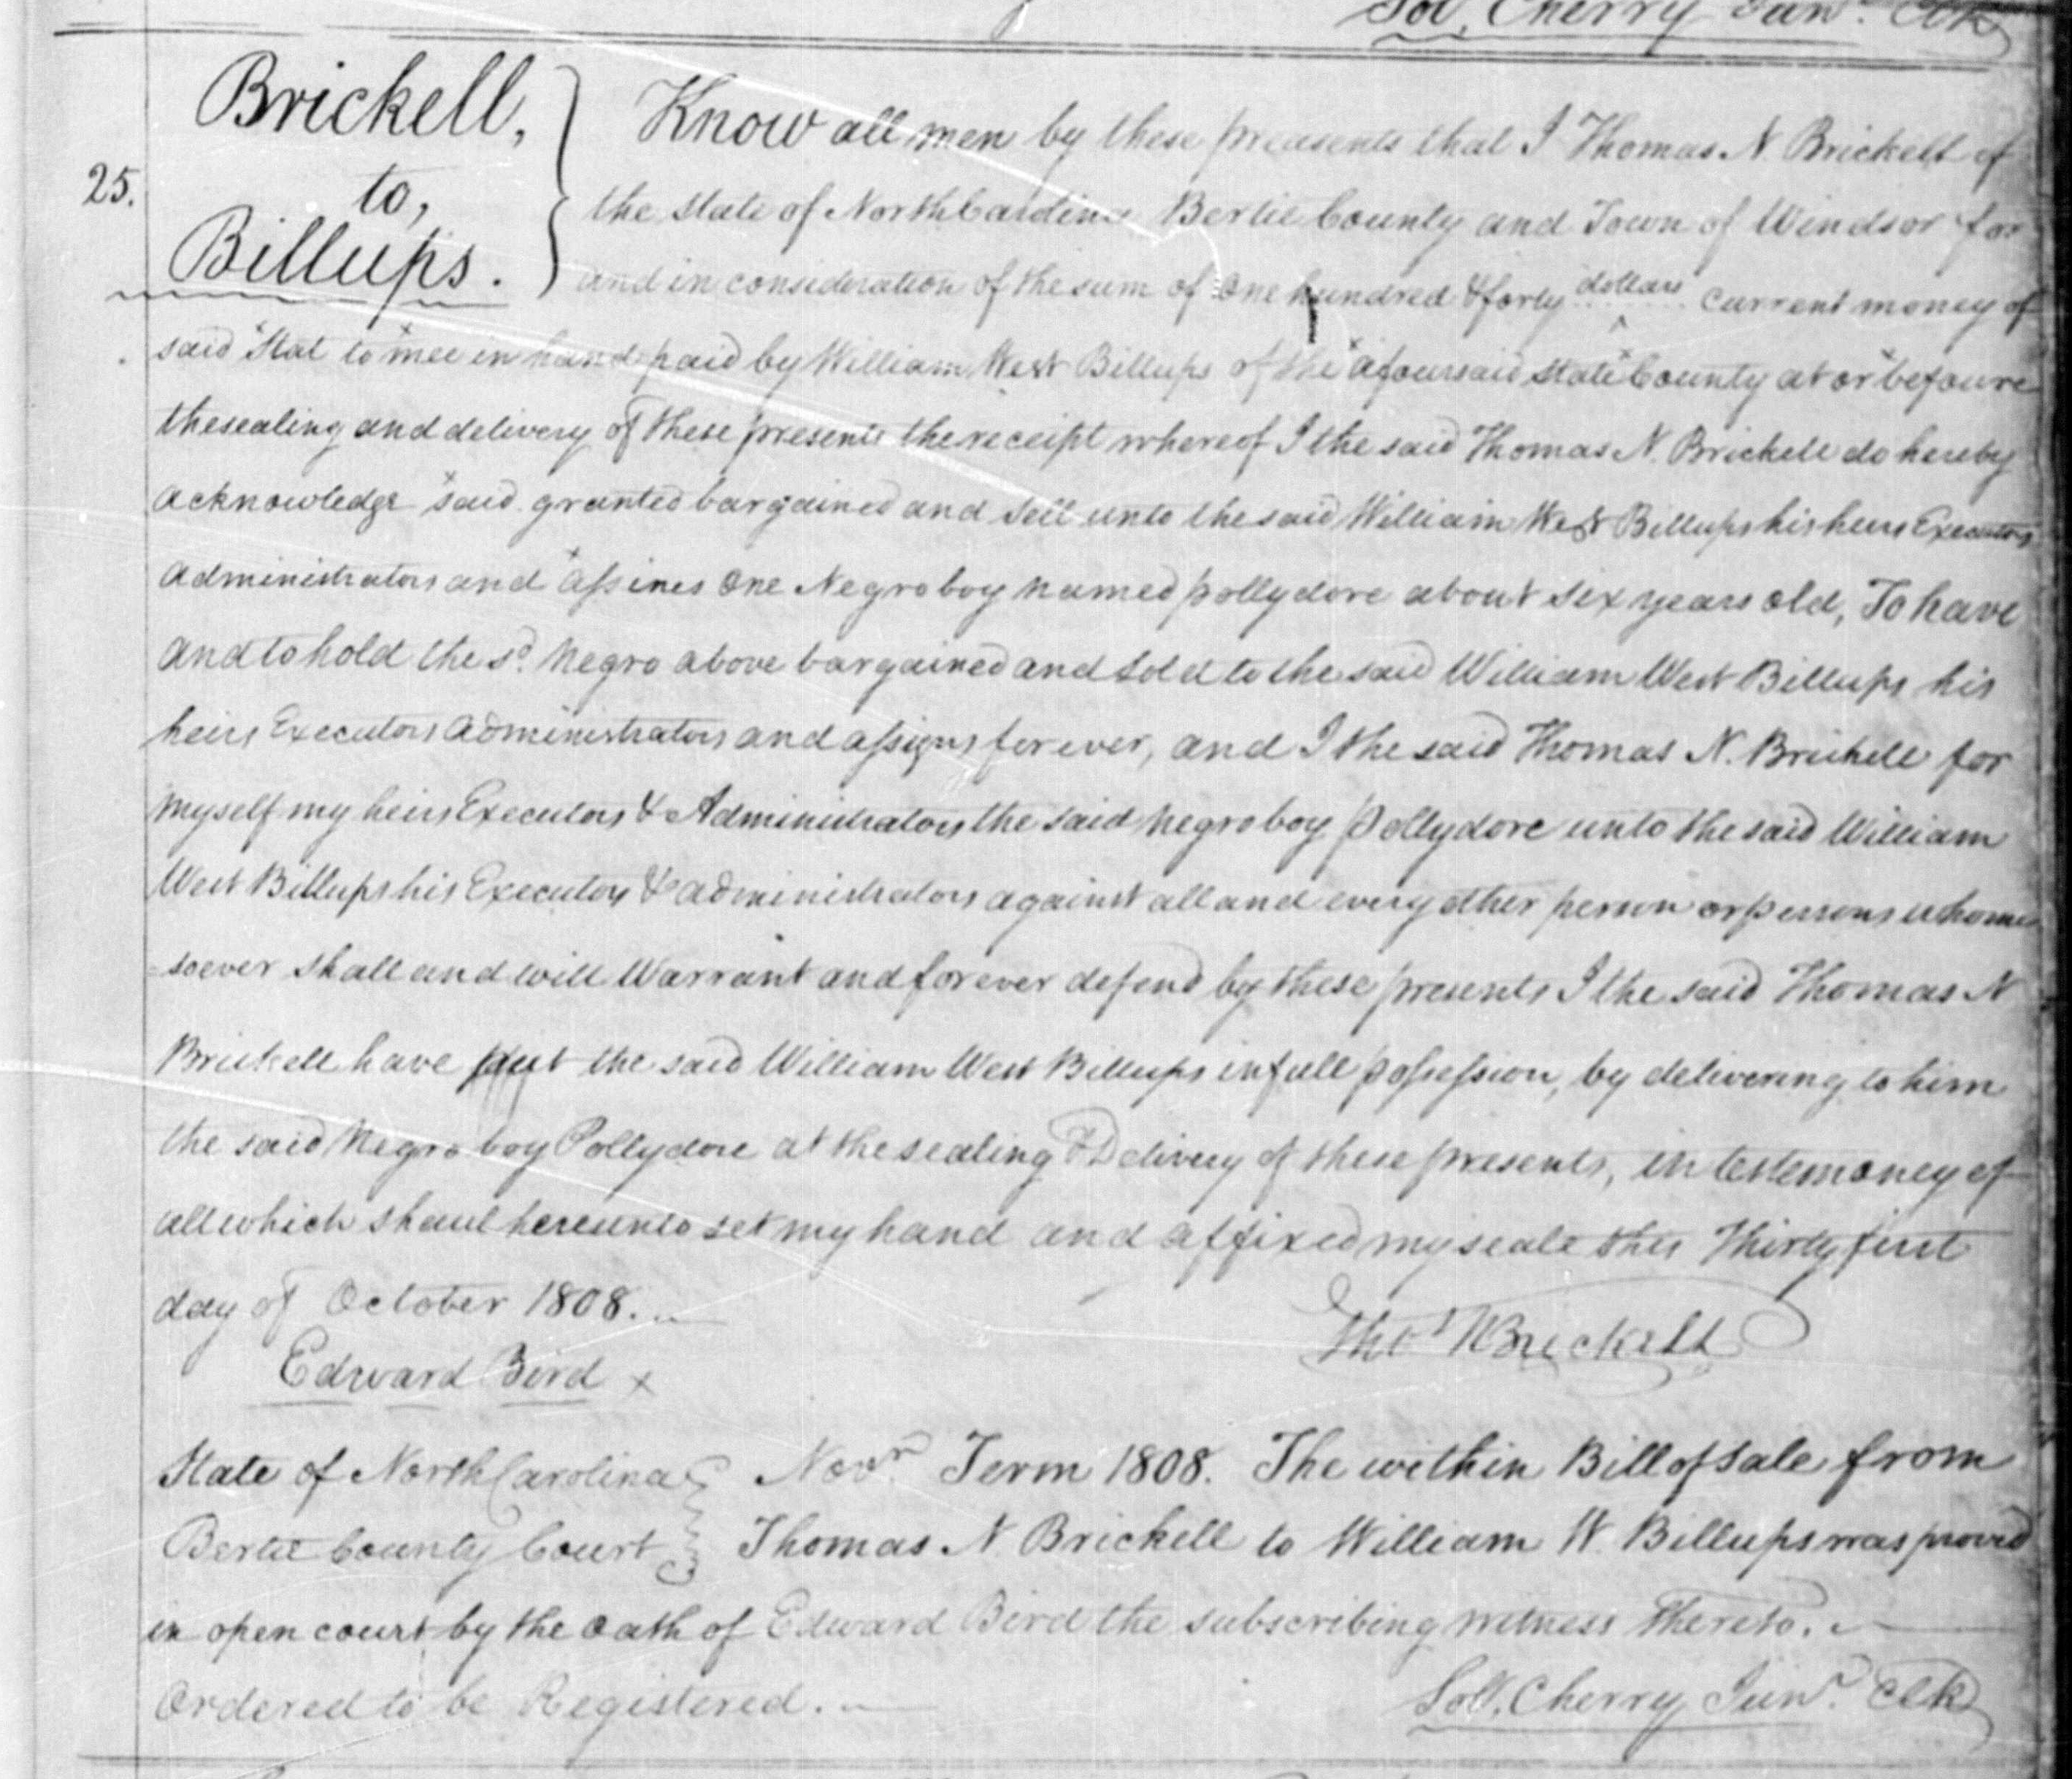 Sol. Cherry Junr. Clk
Brickell,
25.
to,
Billups.
Know all men by these preasents that I Thomas N. Brickell of
the state of North Carolina Bertie County and Town of Windsor for
and in consideration of the sum of one hundred & forty dollars current money of
said "Stat to "mee in hand paid by William West Billups of the "afoursaid state "County at or "befoure
the sealing and delivery of these presents the receipt whereof I the said Thomas N. Brickell do hereby
acknowledge "said granted bargained and sell unto the said William West Billups his heirs Executors
administrators and "assines one Negro boy named pollydore about six years old, To have
and to hold the sd. Negro above bargained and sold to the said William West Billups his
heirs Executors administrators and assigns forever, and I the said Thomas N. Brickell for
myself my heirs Executors & Administrators the said negro boy pollydore unto the said William
West Billups his Executors & administrators against all and every other person or persons whome
=soever shall and will Warrant and forever defend by these presents I the said Thomas N
Brickell have put the said William West Billups in full possession, by delivering to him
the said Negro boy Pollydore at the sealing & Delivery of these presents, in testemoney of
all which shaul hereunto set my hand and affixed my seale this Thirty first
day of October 1808.
Thos N Brickell
Edward Bird x
State of North Carolina Novr Term 1808. The within Bill of sale from
Bertie County Court Thomas N Brickell to William W. Billups was proved
in open court by the oath of Edward Bird the subscribing witness thereto.
Ordered to be Registered.
Soll. Cherry Junr. Clk